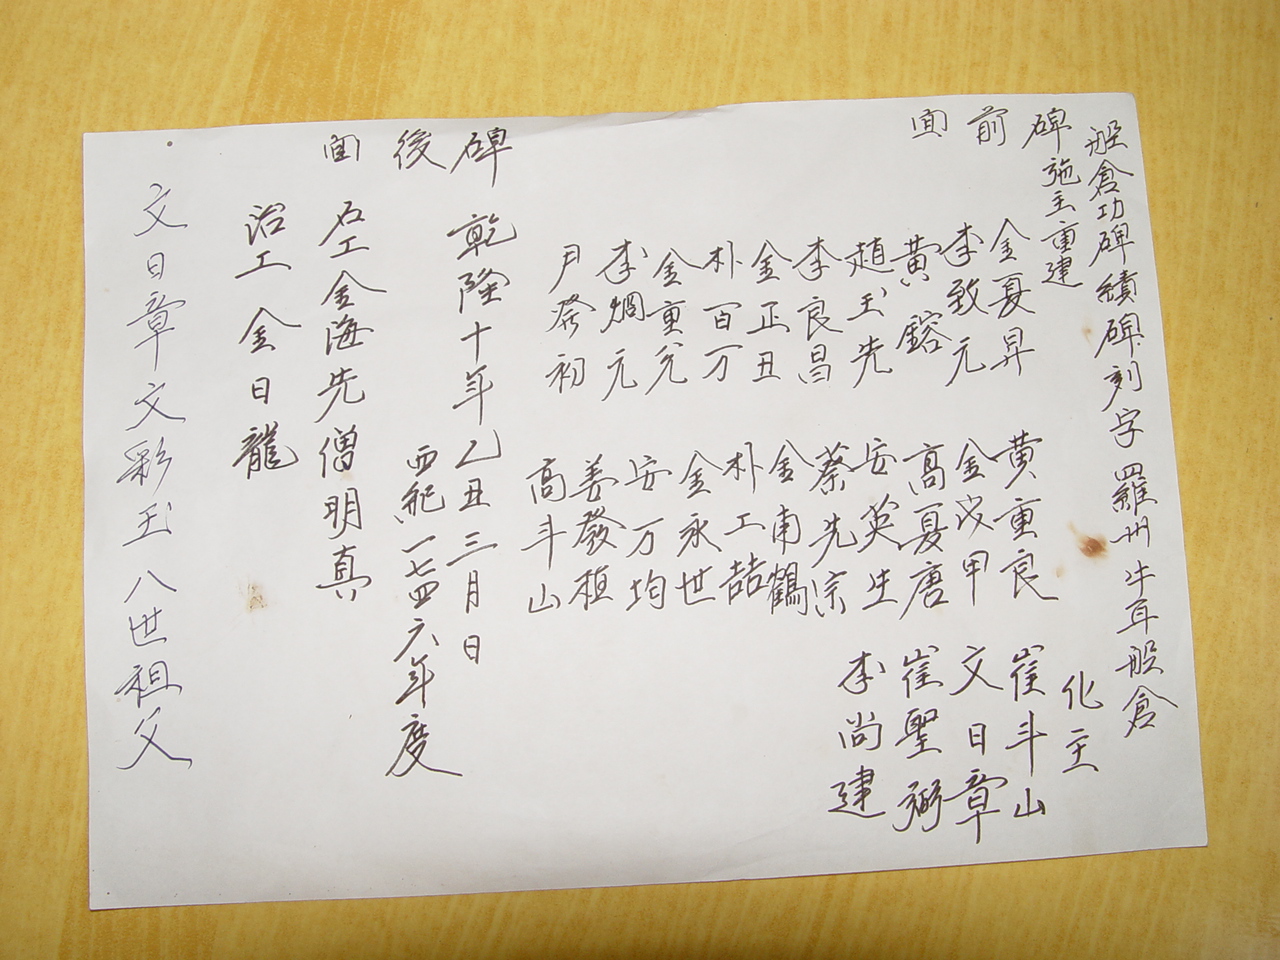 船倉功碑績碑刻字 羅州牛耳船倉
碑前面
施主重建 化主
金夏昇 黄重良 崔斗山
李致元 金戊甲 文日章
黄鎔 高夏唐 崔聖弼
趙玉先 安英生 李尚建
李良昌 蔡先宗
金正丑 金南鶴
朴百万 朴工喆
金重兌 金永世
李烱元 安万均
尹発初 姜發植
高斗山
碑後面
乾隆十年乙丑三月日
西紀一七四六年度
石工金海先僧明真
治工 金日龍
文日章文彩玉八世祖父